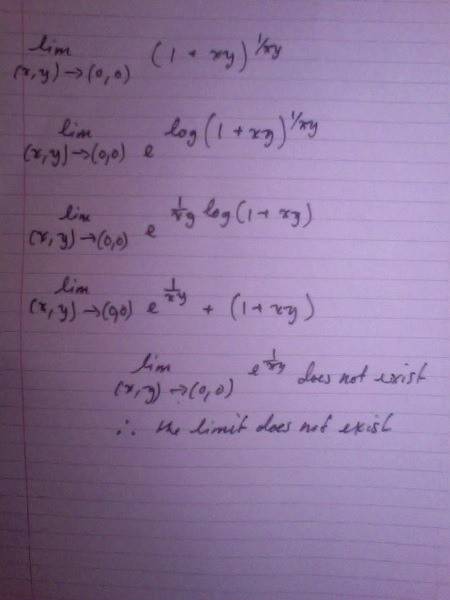 lim (x,y)→(0,0) (1 + xy)^1/xy
lim (x,y)→(0,0) e^log(1 + xy)^1/xy
lim (x,y)→(0,0) e^1/xy log(1 + xy)
lim (x,y)→(0,0) e^1/xy + (1 + xy)
lim (x,y)→(0,0) e^1/xy does not exist
∴ the limit does not exist